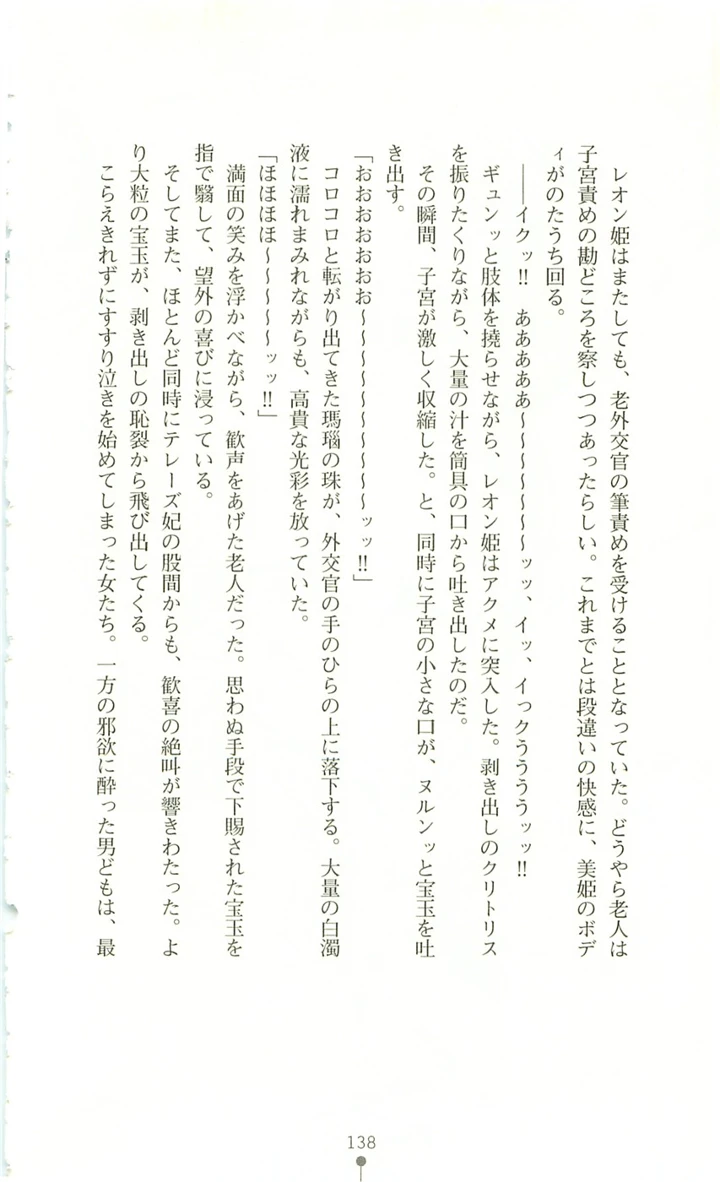 レオン姫はまたしても、老外交官の筆責めを受けることとなっていた。どうやら老人は
子宮責めの勘どころを察しつつあったらしい。これまでとは段違いの快感に、美姫のボデ
ィがのたうち回る。
――イクッ!! ああああぁ～～～～～～ッッ、イッ、イっクうううッッ!!
ギュンッと肢体を撓らせながら、レオン姫はアクメに突入した。剥き出しのクリトリス
を振りたくりながら、大量の汁を筒具の口から吐き出したのだ。
その瞬間、子宮が激しく収縮した。と、同時に子宮の小さな口が、ヌルンッと宝玉を吐
き出す。
「おおおおおおお～～～～～～～～～ッッ!!」
コロコロと転がり出てきた瑪瑙の珠が、外交官の手のひらの上に落下する。大量の白濁
液に濡れまみれながらも、高貴な光彩を放っていた。
「ほほほほ～～～～～ッッ!!」
満面の笑みを浮かべながら、歓声をあげた老人だった。思わぬ手段で下賜された宝玉を
指で翳して、望外の喜びに浸っている。
そしてまた、ほとんど同時にテレーズ妃の股間からも、歓喜の絶叫が響きわたった。よ
り大粒の宝玉が、剥き出しの恥裂から飛び出してくる。
こらえきれずにすすり泣きを始めてしまった女たち。一方の邪欲に酔った男どもは、最
138